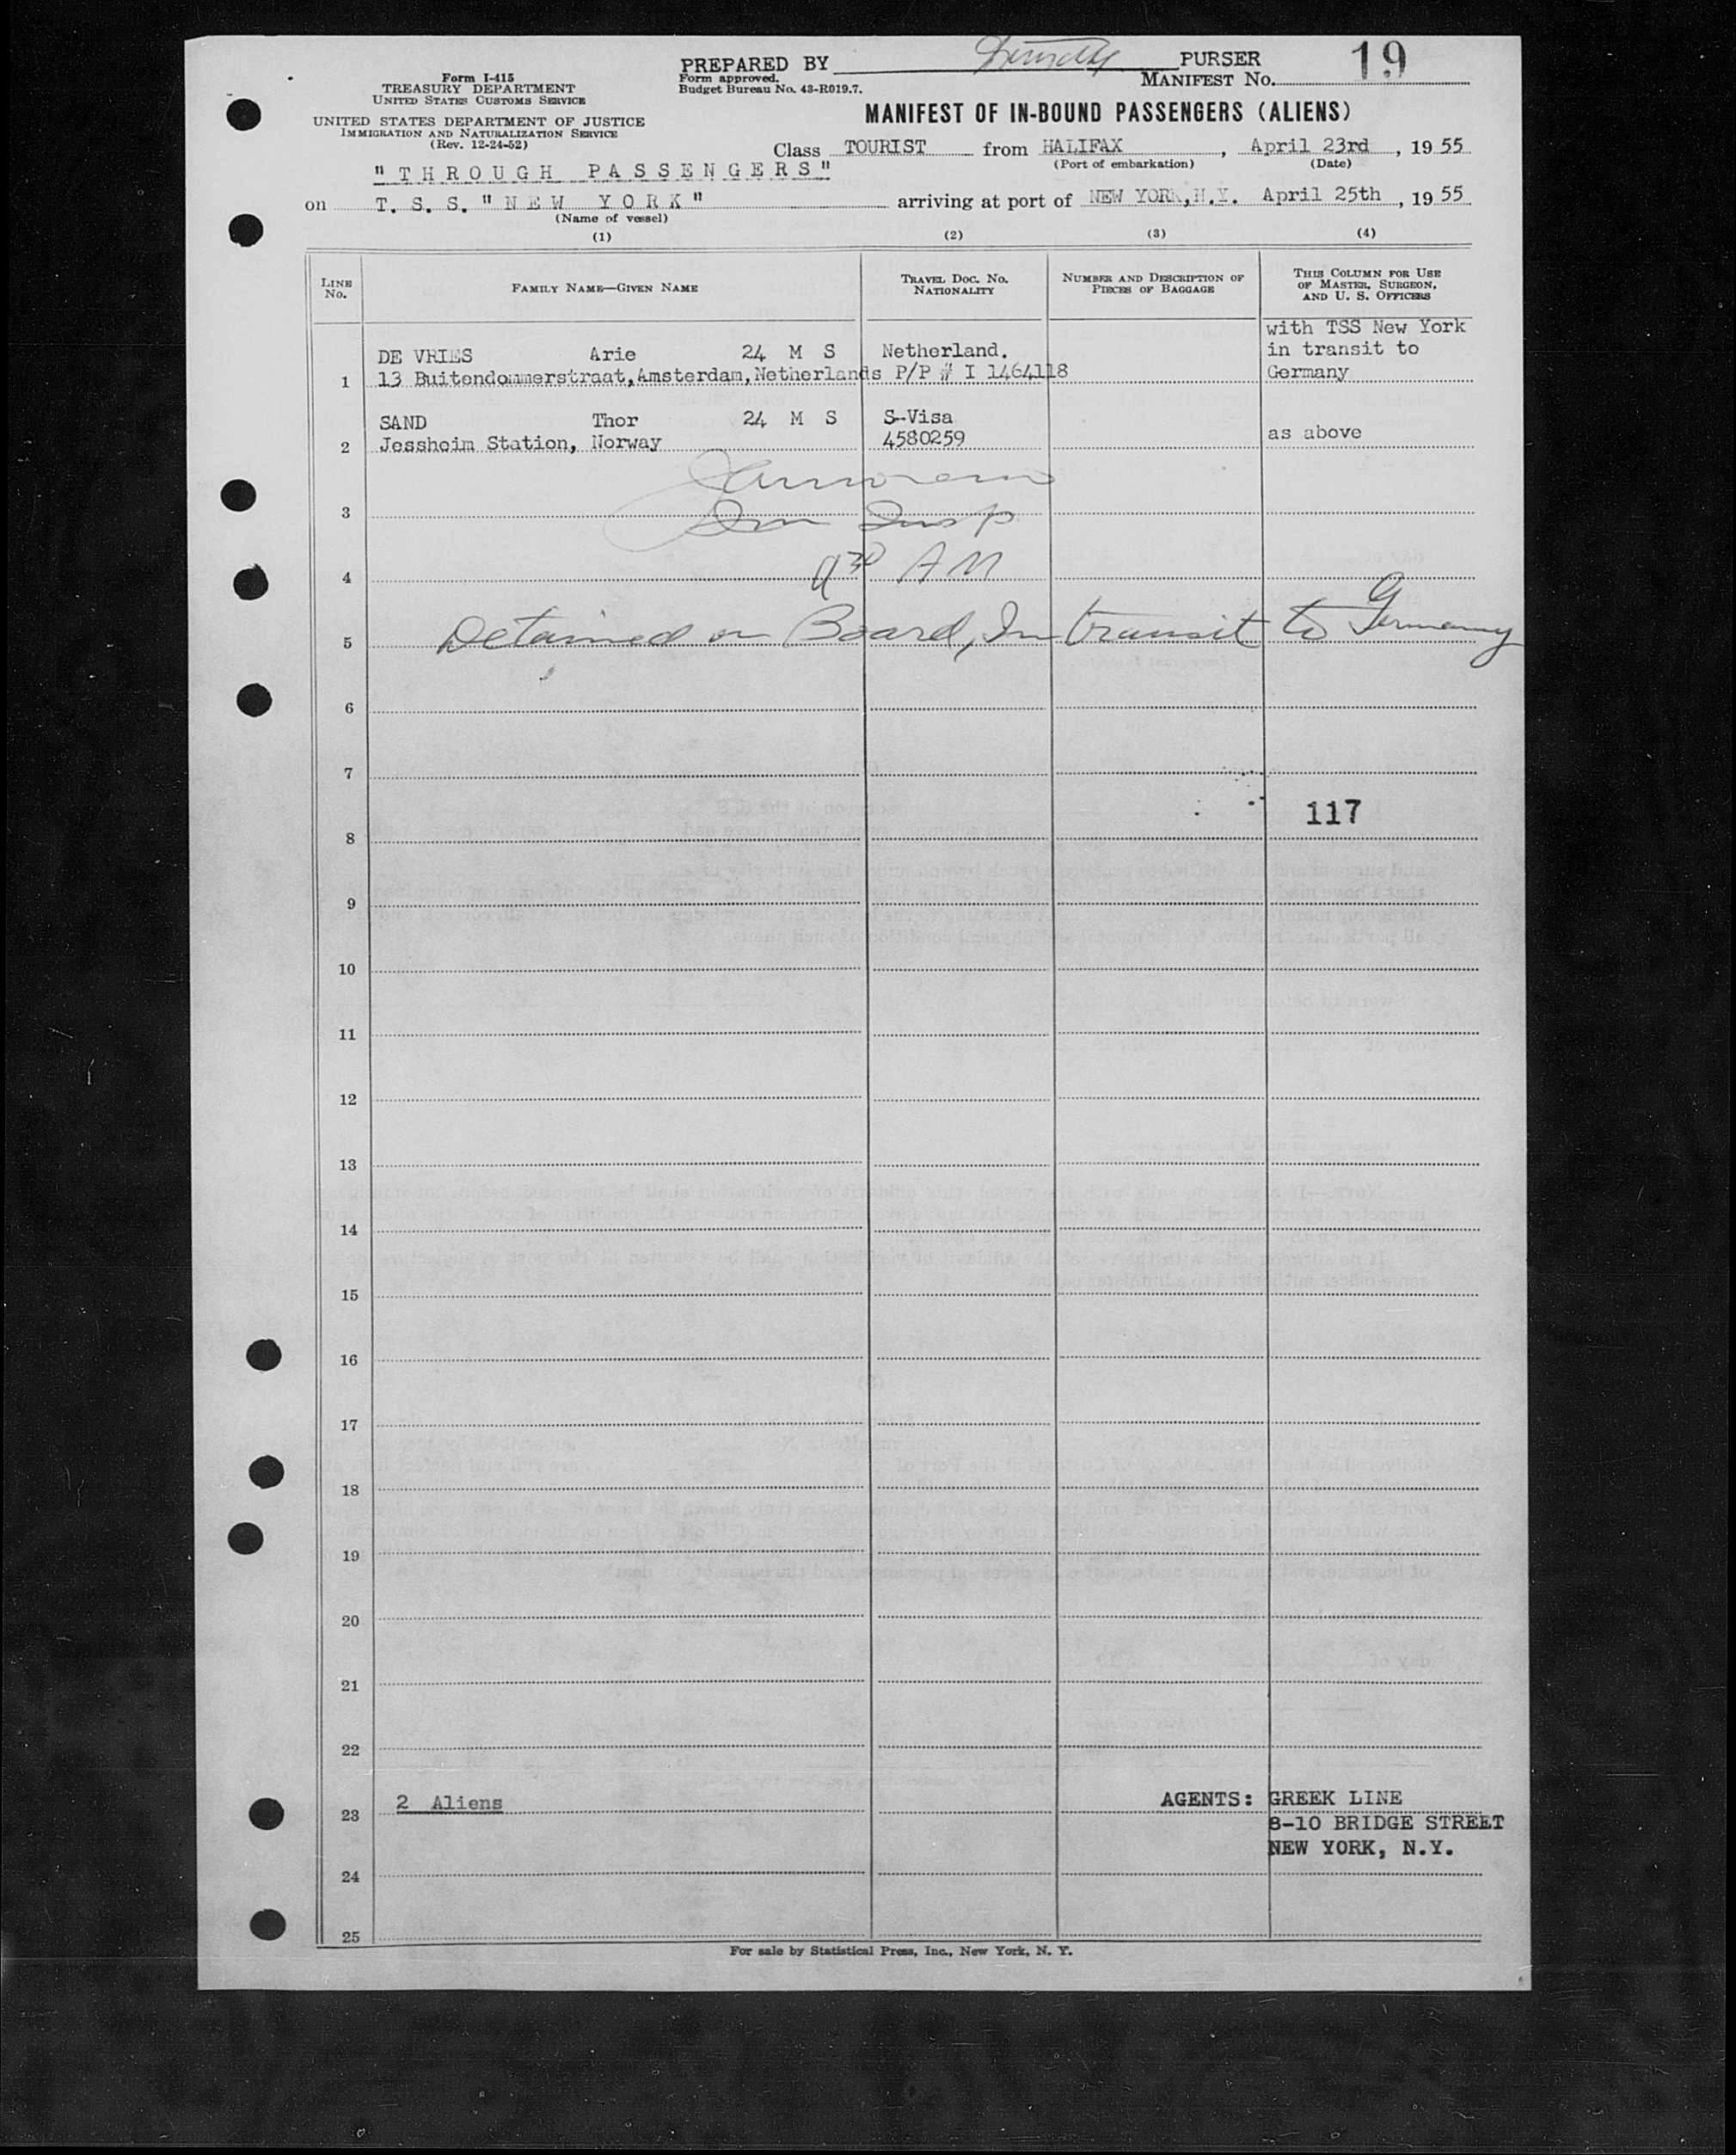 PREPARED BY PURSER
Form I-415
TREASURY DEPARTMENT
UNITED STATES CUSTOMS SERVICE
UNITED STATES DEPARTMENT OF JUSTICE
IMMIGRATION AND NATURALIZATION SERVICE
(Rev. 12-24-52)
Form approved.
Budget Bureau No. 43-R019.7.
MANIFEST NO. 19
MANIFEST OF IN-BOUND PASSENGERS (ALIENS)
Class TOURIST from HALIFAX, April 23rd, 1955
(Port of embarkation) (Date)
"THROUGH PASSENGERS"
on T. S. S. "NEW YORK" arriving at port of NEW YORK, N.Y. April 25th, 1955
(Name of vessel)
(1) (2) (3) (4)
LINE NO. FAMILY NAME—GIVEN NAME TRAVEL DOC. NO. NATIONALITY NUMBER AND DESCRIPTION OF PIECES OF BAGGAGE THIS COLUMN FOR USE OF MASTER, SURGEON, AND U. S. OFFICERS
with TSS New York
DE VRIES Arie 24 M S Netherland. in transit to
1 13 Buitendommerstraat, Amsterdam, Netherlands P/P # I 1464118 Germany
SAND Thor 24 M S S-Visa
2 Jessheim Station, Norway 4580259 as above
3 Imm Insp
4 9 30 AM
5 Detained on Board, In transit to Germany
6
7
117
8
9
10
11
12
13
14
15
16
17
18
19
20
21
22
23 2 Aliens AGENTS: GREEK LINE
8-10 BRIDGE STREET
NEW YORK, N.Y.
24
25
For sale by Statistical Press, Inc., New York, N. Y.